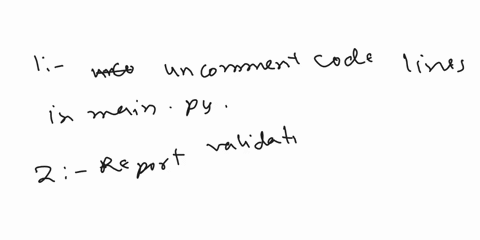 1:- uncomment code lines
in main.py.
2:- Report validati